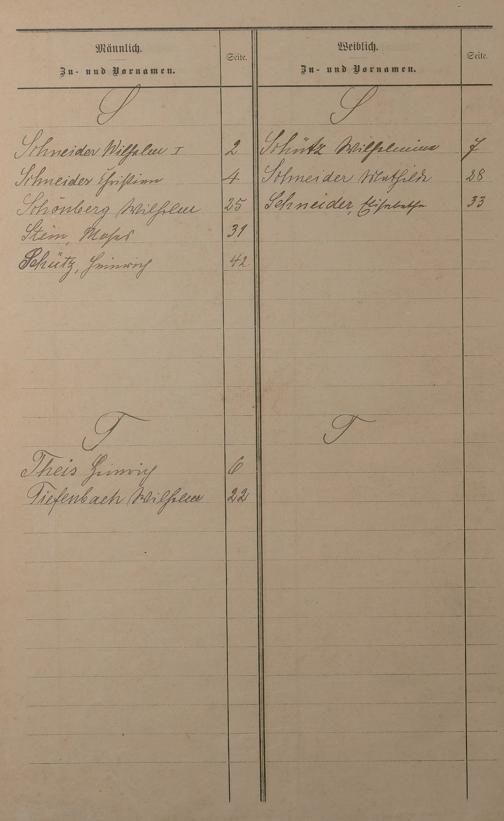 Männlich.
Zu- und Vornamen.
Seite.
S
Schneider Wilhelm I 2
Schneider Christian 4
Schönberg Wilhelm 25
Stein, Moses 31
Schütz, Heinrich 42
T
Theis Heinrich 6
Tiefenbach Wilhelm 22
Weiblich.
Zu- und Vornamen.
Seite.
S
Schütz Wilhelmine 7
Schneider Mathilde 28
Schneider, Elisabetha 33
T